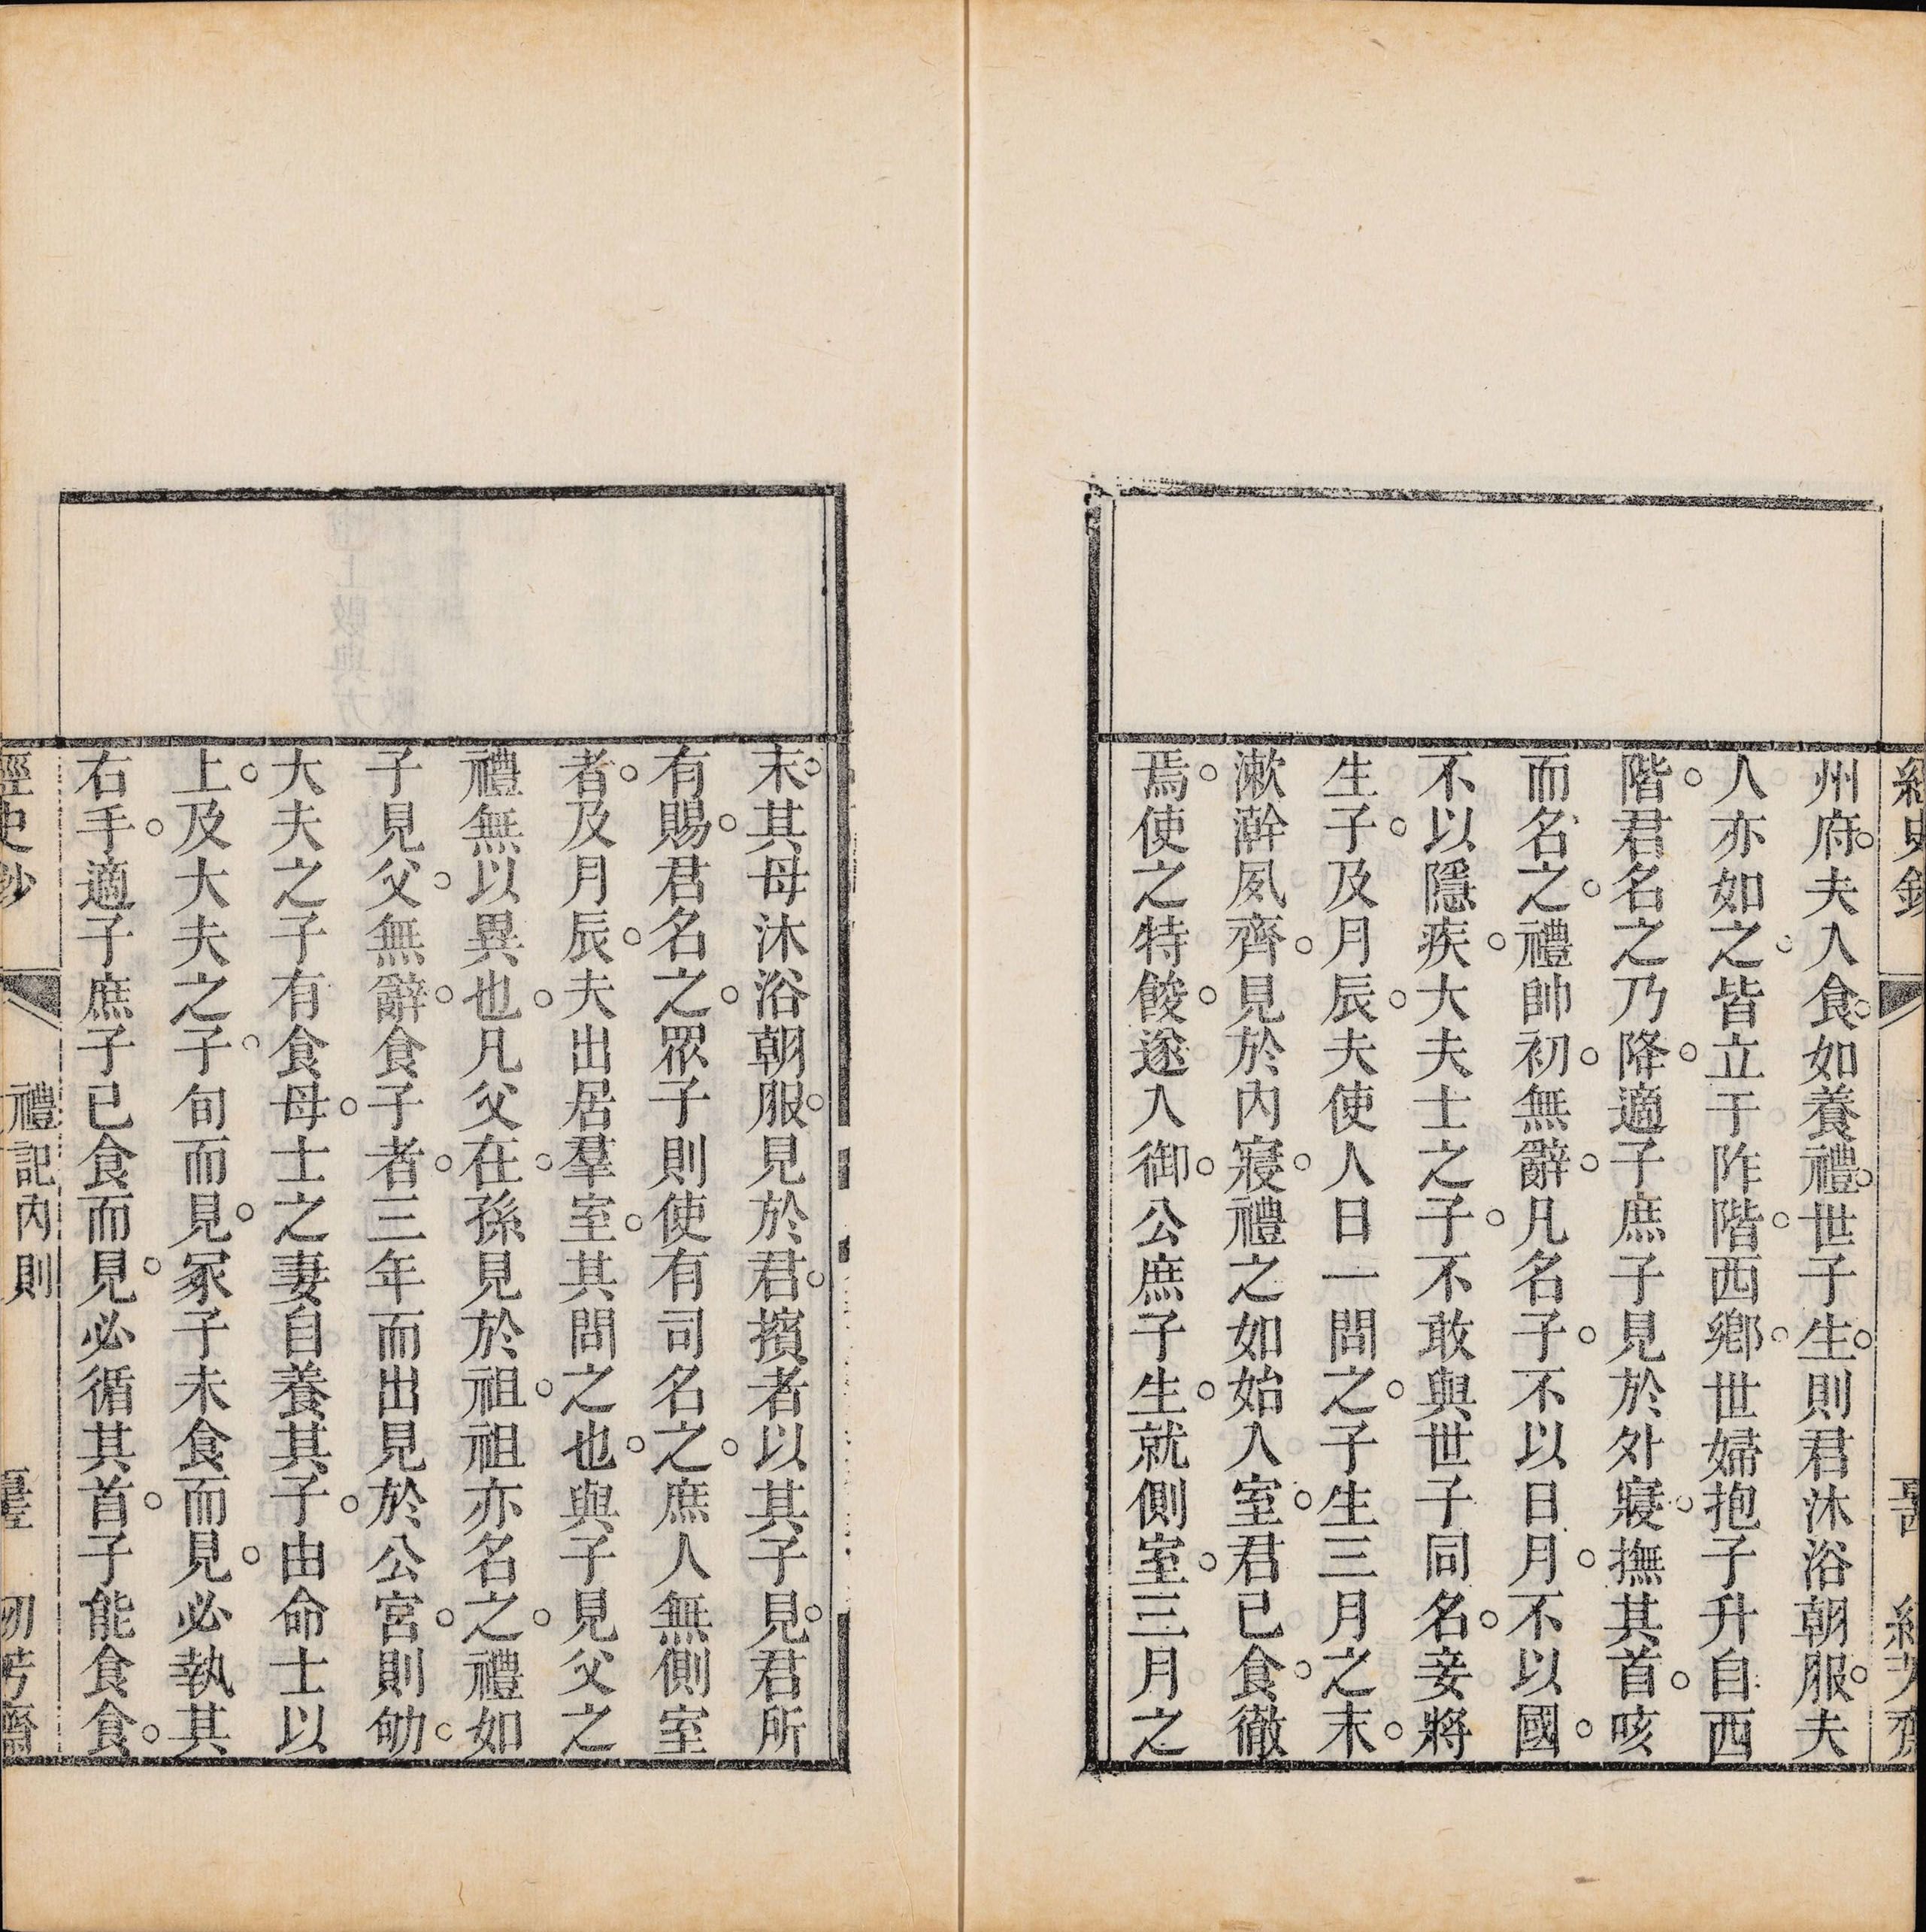 州府。夫入食。如養禮。世子生。則君沐浴朝服。夫
人亦如之。皆立于阼階。西鄉。世婦抱子升自西
階。君名之乃降。適子庶子見於外寢。撫其首。咳
而名之。禮帥初。無辭。凡名子。不以日月。不以國。
不以隱疾。大夫士之子。不敢與世子同名。妾將
生子。及月辰。夫使人日一問之。子生三月之末。
漱澣夙齊。見於內寢。禮之如始入室。君已食。徹
焉。使之特餕。遂入御。公庶子生。就側室。三月之
末。其母沐浴朝服。見於君。擯者以其子見。君所
有賜。君名之。眾子則使有司名之。庶人無側室
者。及月辰。夫出居羣室。其問之也。與子見父之
禮無以異也。凡父在。孫見於祖。祖亦名之。禮如
子見父。無辭。食子者。三年而出見於公宮。則劬。
大夫之子有食母。士之妻自養其子。由命士以
上。及大夫之子。旬而見。冢子未食而見。必執其
右手。適子庶子已食而見。必循其首。子能食食。
經史鈔
禮記內則